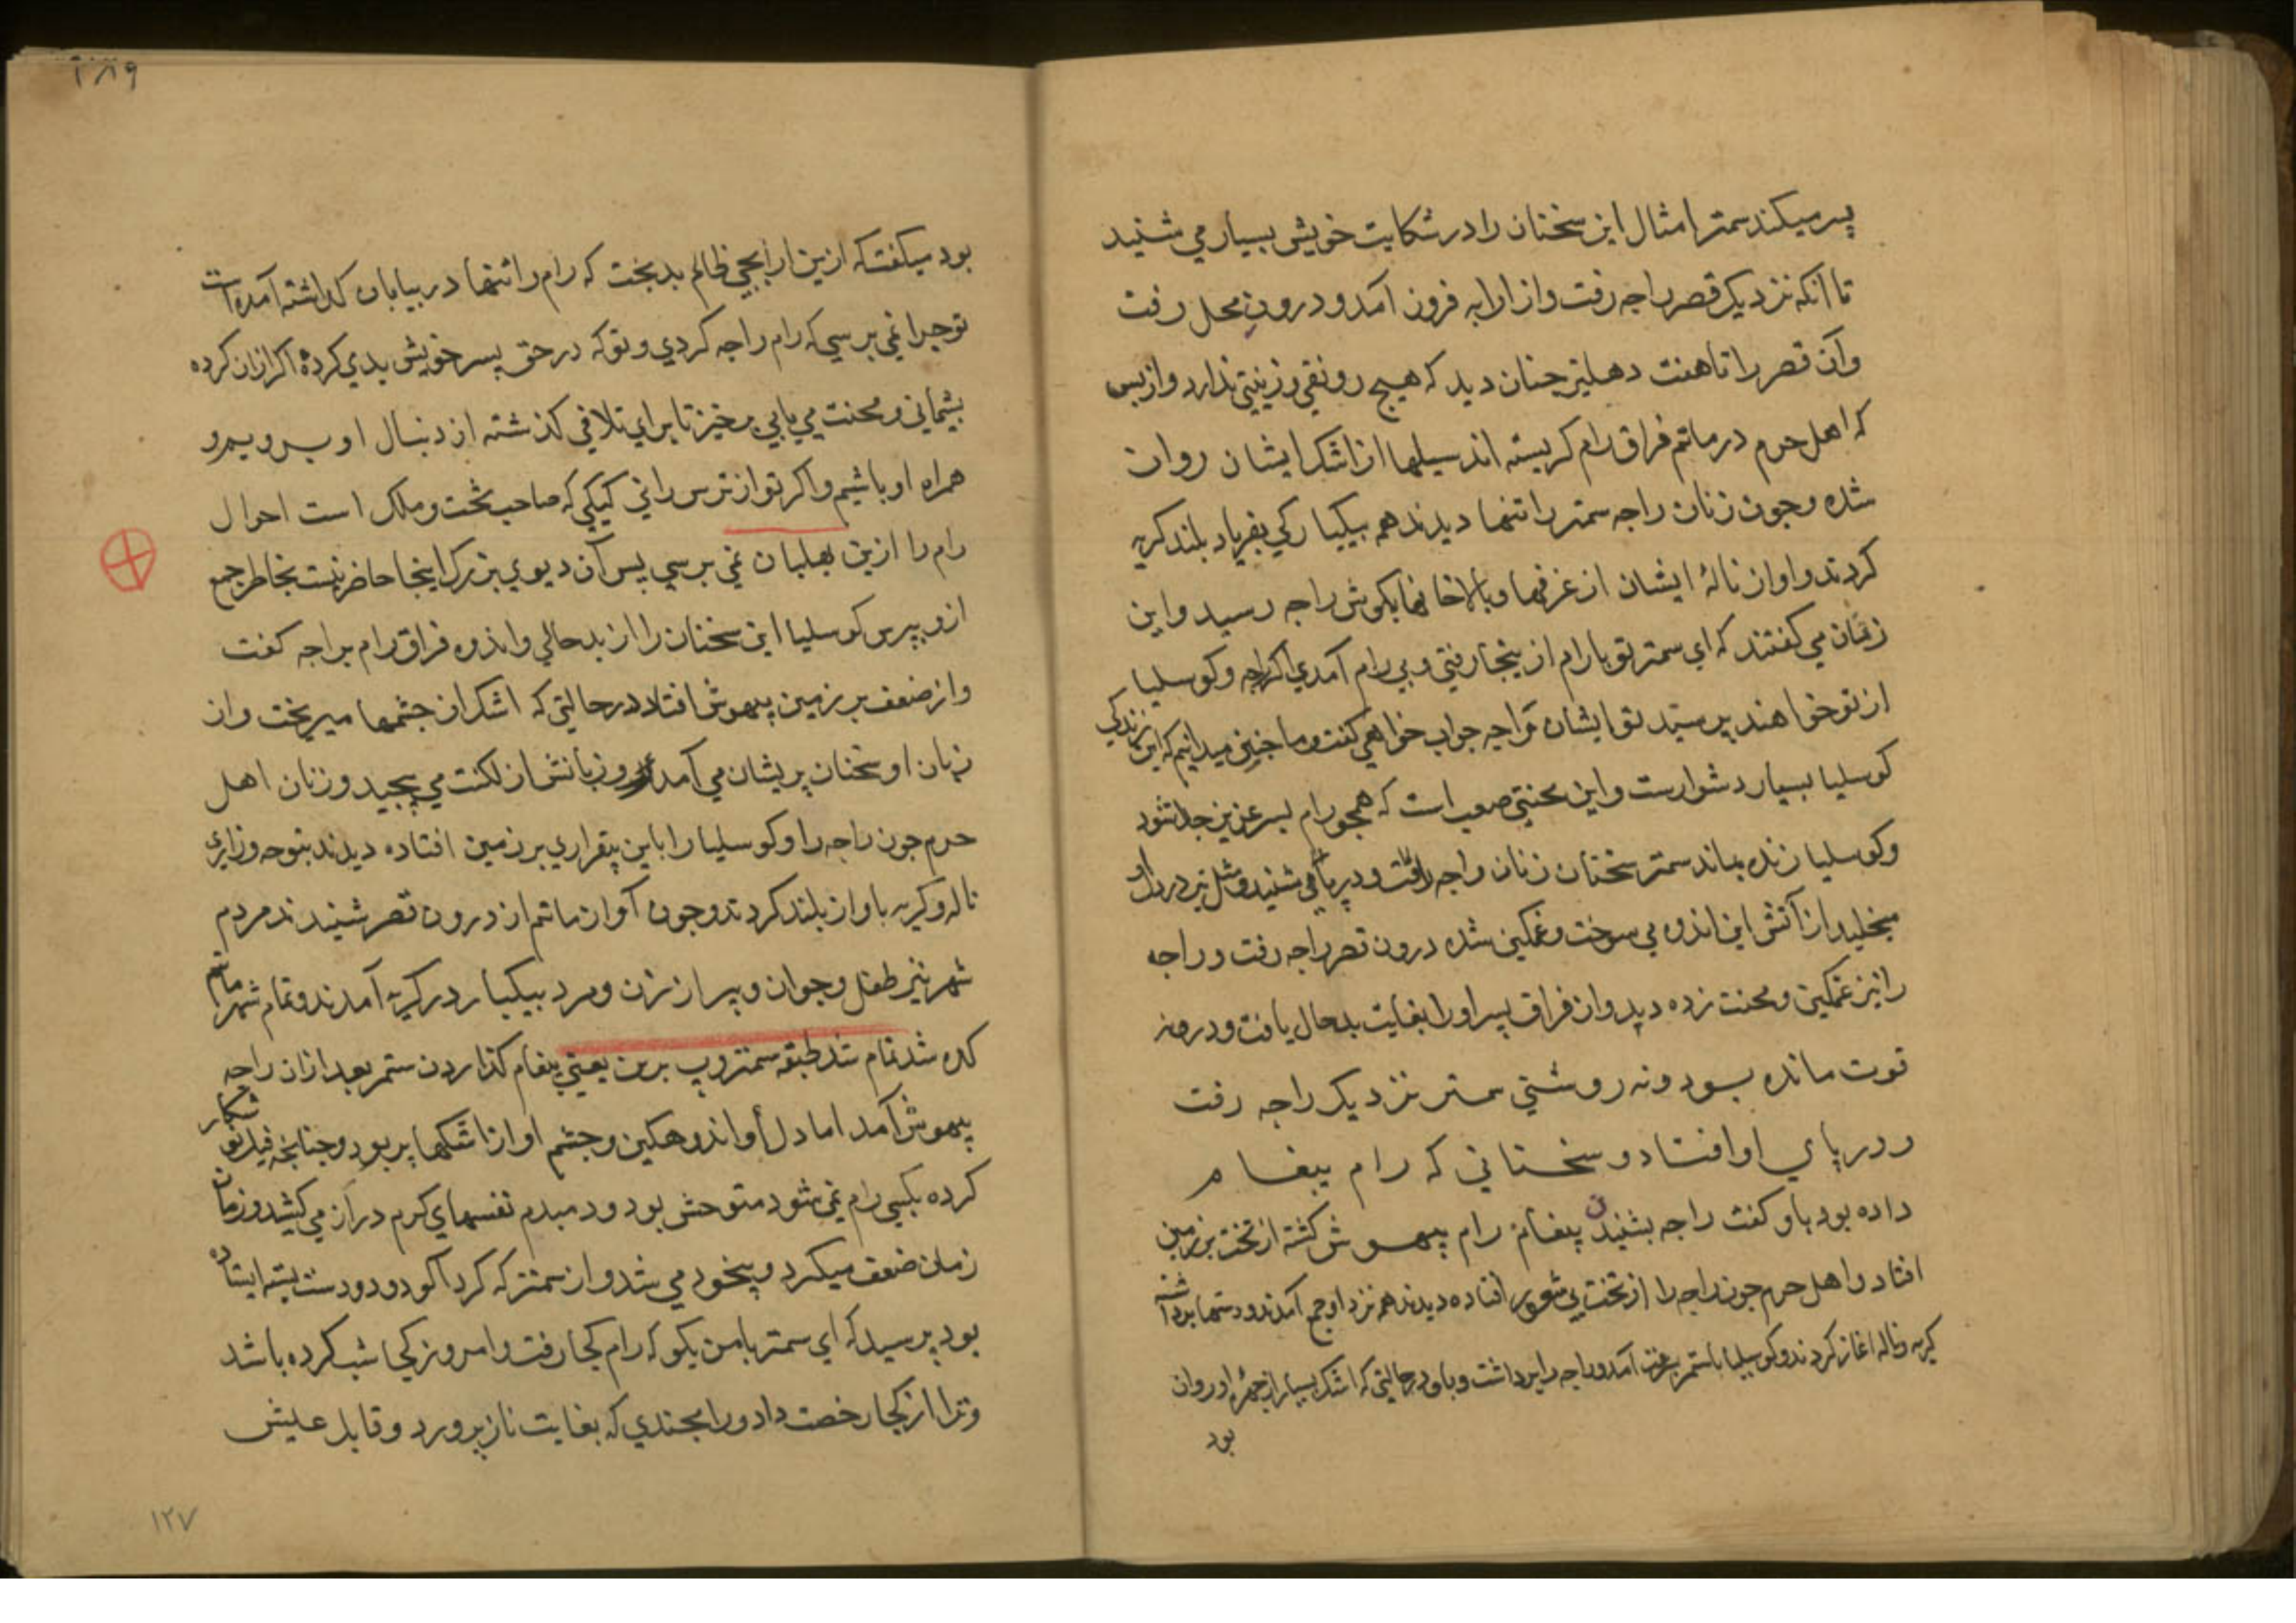 پسر میکند سمتر امثال این سخنان را در شکایت خویش بسیار می شنید
تا آنکه نزدیک قصر راجه رفت و از ارابه فرون آمد و درون محل رفت
و آن قصر را تا هفت دهلیز چنان دید که هیچ رونقی و زینتی ندارد و از بس
که اهل حرم در ماتم فراق رام کریسته اند سیلها از اشک ایشان روان
شده و چون زنان راجه سمتر را تنها دیدند همه بیکبارکی بفریاد بلند کریه
کردند و اواز نالهٔ ایشان از غرفها و بالاخانها بکوش راجه رسید و این
زنان می کفتند که ای سمتر تو با رام از ینجا رفتی و بی رام آمدی اکر راجه و کوسلیا
از تو خواهند پرسید تو ایشان را چه جواب خواهی کفت و ما چنین میدانیم که این زندکی
کوسلیا بسیار دشوارست و این محنتی صعب است که همچو رام پسر عزیز جدا شود
و کوسلیا زنده بماند سمتر سخنان زنان راجه می شنید و مثل تیر در دل او
میخلید از آتش این اندوه می سوخت و غمکین شده درون قصر راجه رفت و راجه
را نیز غمکین و محنت زده دید و از فراق پسر او را بغایت بدحال یافت و درو نه
قوت مانده بود و نه روشنی سمتر نزدیک راجه رفت
و در پای او افتاد و سخنانی که رام پیغام
داده بود باو کفت راجه بشنیدن پیغام رام بیهوش کشته از تخت بر زمین
افتاد و اهل حرم چون راجه را از تخت بی شعور افتاده دیدند همه نزد او جمع آمدند و دستها برداشته
کریه و ناله اغاز کردند و کوسلیا با ستمر بسرعت آمد و راجه را برداشت و باو در حالتی که اشک بسیار از چهرهٔ او روان
بود
۲۸۹
بود میکفت که ازین ارابچی ظالم بدبخت که رام را تنها در بیابان کذاشته آمده است
تو چرا نمی پرسی که رام را چه کردی و تو که در حق پسر خویش بدی کردهٔ اکر ازان کرده
پشیمانی و محنت می یابی برخیز تا برای تلافی کذشته از دنبال او برویم و
همراه او باشیم و اکر تو از ترس رانی کیکی که صاحب تخت و ملک است احوال
رام را ازین بهلبان نمی پرسی پس آن دیوی بزرک اینجا حاضر نیست بخاطر جمع
ازو بپرس کوسلیا این سخنان را از بدحالی و اندوه فراق رام براجه کفت
و از ضعف بر زمین بیهوش افتاد در حالتی که اشک از چشمها میریخت و از
زبان او سخنان پریشان می آمد و زبانش از لکنت می پیچید و زنان اهل
حرم چون راجه را و کوسلیا را باین بیقراری بر زمین افتاده دیدند بنوحه و زاری
ناله و کریه باواز بلند کردند و چون آواز ماتم از درون قصر شنیدند مردم
شهر نیز طفل و جوان و پیر از زن و مرد بیکبار در کریه آمدند و تمام شهر ماتم
کده شد تمام شد طبقه سمتر وپ برن یعنی پیغام کذاردن ستمر بعد ازان راجه
بیهوش آمد اما دل او اندوهکین و چشم او از اشکها پر بود و چنانچه فیل نو شکار
کرده بکسی رام نمی شود متوحش بود و دمبدم نفسهای کرم دراز می کشید و زمان
زمان ضعف میکرد و بیخود می شد و از سمتر که کرد آلود و دو دست بسته ایستاده
بود پرسید که ای سمتر بامن بکو که رام کجا رفت و امروز کجا شب کرده باشد
و ترا از کجا رخصت داد و رامچندی که بغایت نازپرورد و قابل عیش
۱۲۷